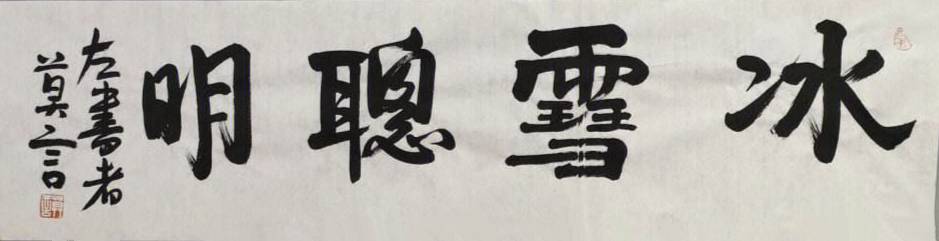 冰雪聰明
左書者
莫言